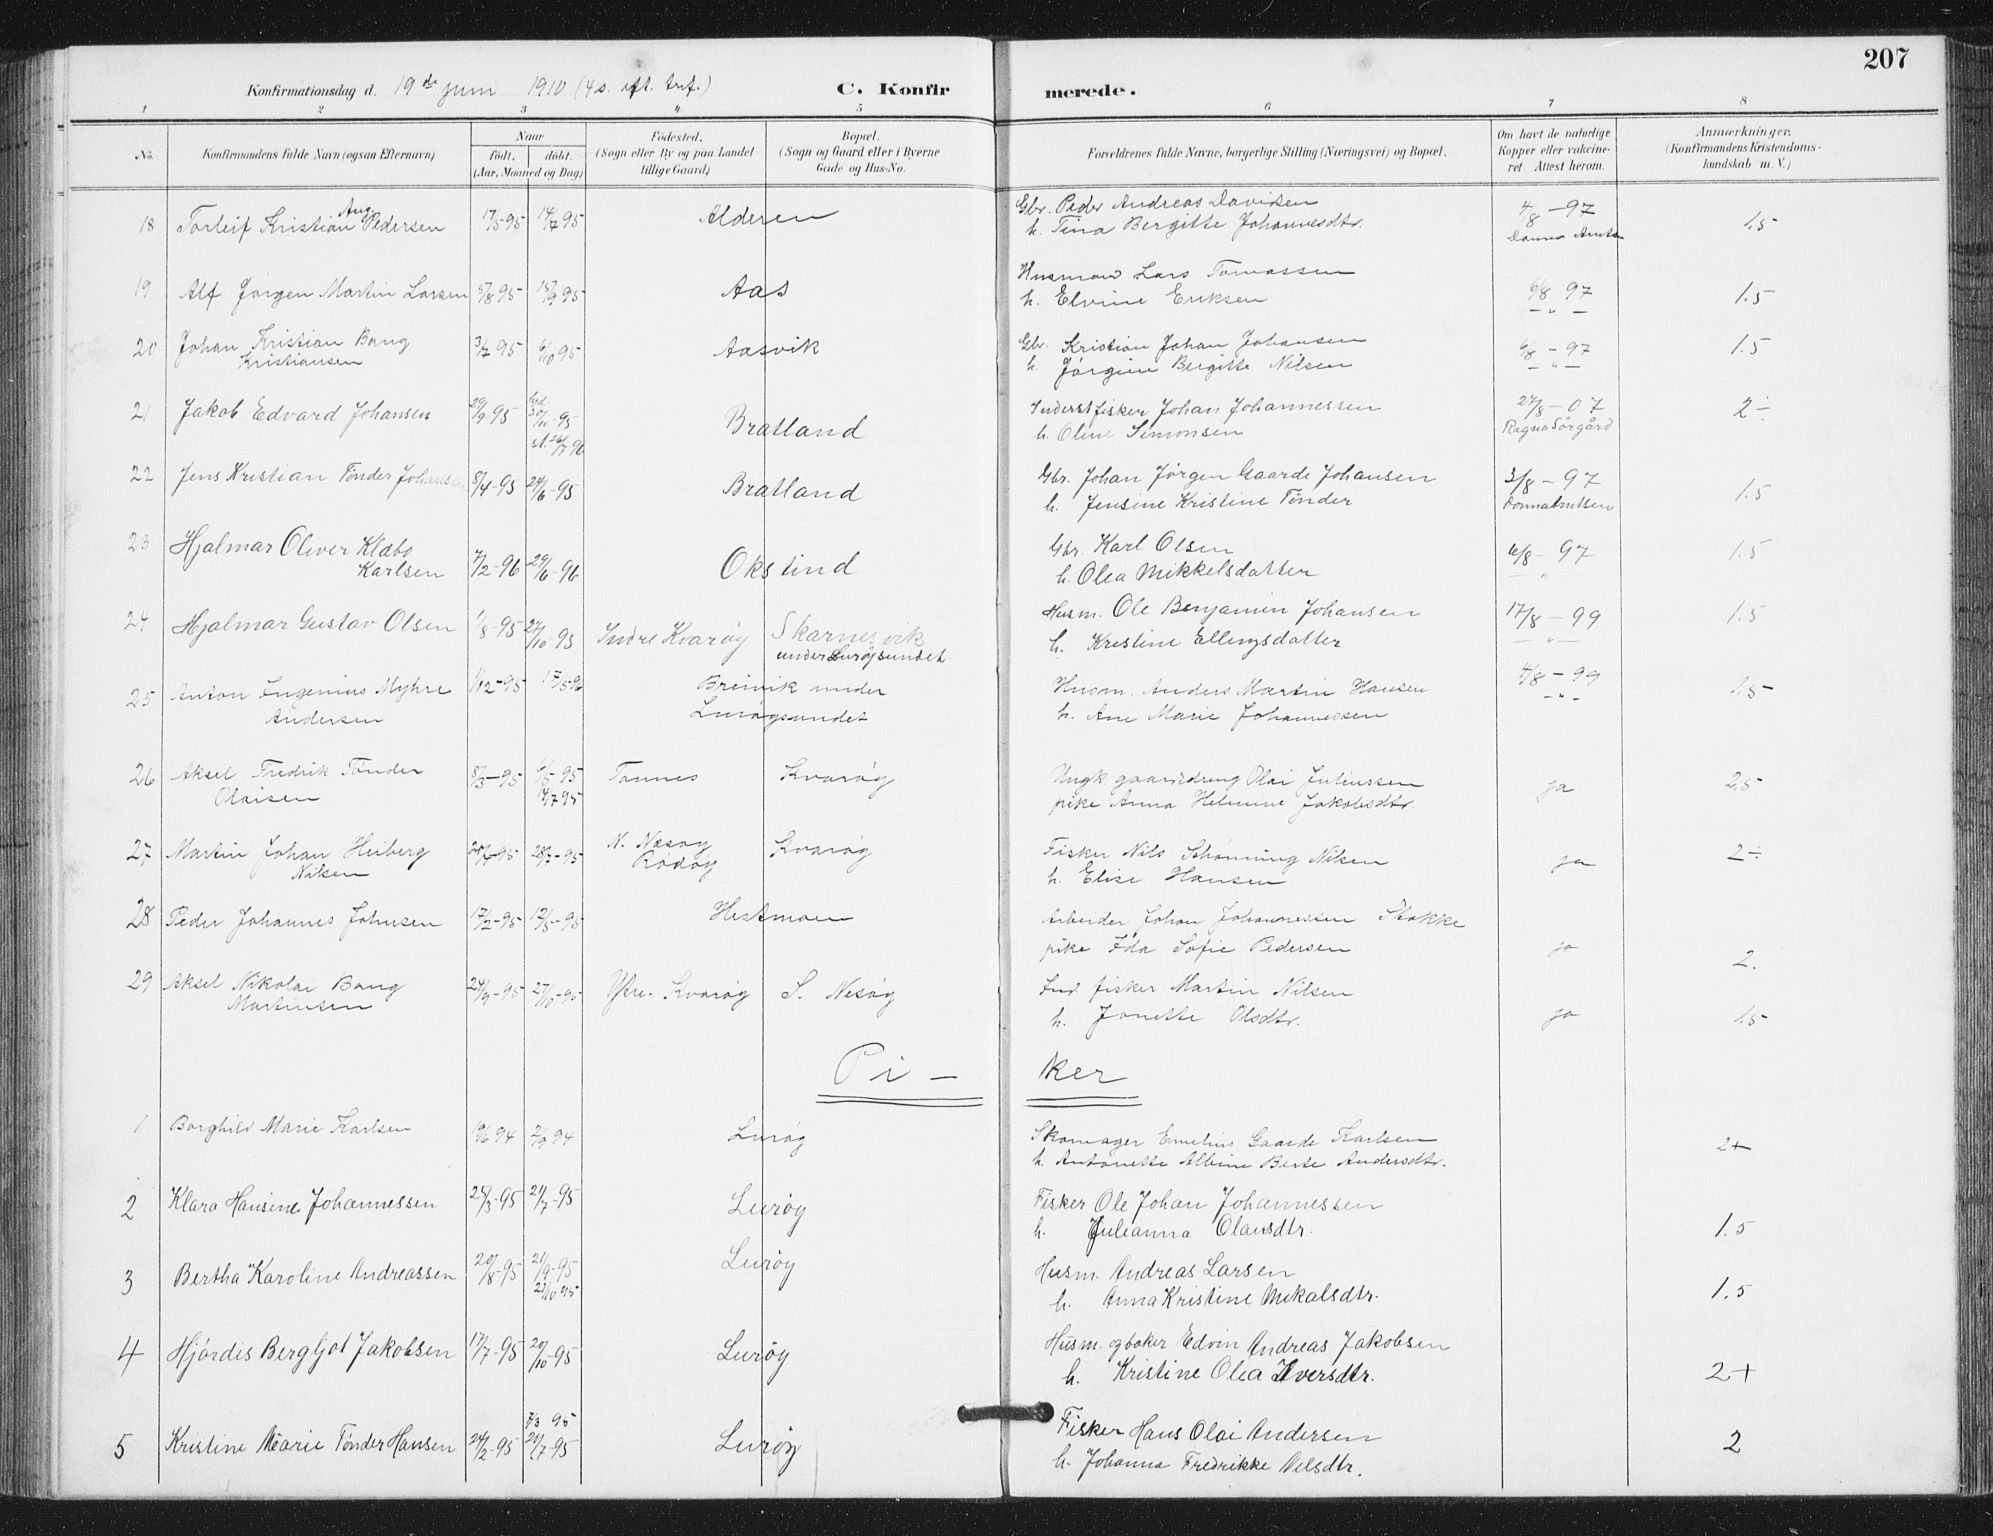 207
Konfirmationsdag d. 19de juni 1910 (4 s. eft. tref.) C. Konfir merede.
1 2 3 " 5 6 7 8
No. Konfirmandens fulde Navn (ogsaa Efternavn) Naar født. døbt. (Aar, Maaned og Dag) Fødested. (Sogn eller By og paa Landet tillige Gaard) Bopæl. (Sogn og Gaard eller i Byerne Gade og Hus-No. Forældrenes fulde Navne, borgerlige Stilling (Næringsvei) og Bopæl. Om havt de naturlige Kopper eller vakcineret. Attest herom. Anmærkninger. (Konfirmandens Kristendomskundskab m. V.)
18 Torleif Kristian Aug. Pedersen 17/5 95 14/7 95 Alderen Gbr. Peder Andreas Davidsen 4/8 - 97 1.5
h. Tina Bergitte Johannesdtr.
19 Alf Jørgen Martin Larsen 5/8 95 15/9 95 Aas Husmand Lars Tomassen 6/8 97 1.5
h. Elvine Eriksen - " -
20 Johan Kristian Bang 3/7 95 6/10 95 Aasvik Gbr. Kristian Johan Johansen 6/8 - 97 1.5
Kristiansen h. Jørgine Bergitte Nilsen - " -
21 Jakob Edvard Johansen 29/9 95 30/10 - 95 Bratland Inderst fisker Johan Johannessen 27/8 - 07 2 ÷
st. 26/7 96 h. Oline Simonsen Ragna Sørgård
22 Jens Kristian Tønder Johansen 8/4-95 24/6-95 Bratland Gbr. Johan Jørgen Gaarde Johansen 3/8 - 97 1.5
h. Jensine Kristine Tønder
23 Hjalmar Oliver Klæbo Okstind Gbr. Karl Olsen 6/8 - 97 1.5
Karlsen 7/2-96 29/6-96 h. Olea Mikkelsdatter - " -
24 Hjalmar Gustav Olsen 1/8-95 27/10 95 Indre Kvarøy Skarnesvik Husm. Ole Benjamin Johansen 17/8 - 99 1.5
under Lurøysundet h. Kristine Ellingsdatter - " -
25 Anton Eugenius Myhre 1/12-95 17/5 96 Breivik under Husm. Anders Martin Hansen 4/8 - 99 1.5
Andersen Lurøysundet h. Ane Marie Johannessen - " -
26 Aksel Fredrik Tønder 8/3-95 6/5-95 Tonnes Kvarøy Ungk. gaardsdreng Olai Juliussen ja 2.5
Olaisen 14/7 95 pike Anna Helmine Jakobsdtr.
27 Martin Johan Heiberg 28/7-95 N. Næsøy Kvarøy Fisker Nils Schønning Nilsen ja 2 ÷
Nilsen Rødøy h. Elise Hansen
28 Peder Johannes Johnsen 17/2-95 12/5-95 Hestmoen Arbeider Johan Johannessen Stokke
pike Ida Sofie Pedersen ja 2.
29 Aksel Nikolai Bang 24/9-95 27/10-95 Ytre-Kvarøy S. Nesøy Ind. fisker Martin Nilsen
Martinsen h. Jonette Olsdtr. ja 1.5
Pi - ker
1 Borghild Marie Karlsen 19/6 94 2/9 94 Lurøy Skomager Emelius Gaarde Karlsen 2+
h. Antonette Albine Berte Andersdtr.
2 Klara Hansine Johannessen 25/3-95 21/7-95 Lurøy Fisker Ole Johan Johannessen 1.5
h. Julianna Olausdtr.
3 Bertha Karoline Andreassen 20/8-95 21/9-95 Lurøy Husm. Andreas Larsen 1.5
27/10 95 h. Anna Kristine Mikalsdtr.
4 Hjørdis Bergljot Jakobsen 17/7-95 20/10-95 Lurøy Husm. og baker Edvin Andreas Jakobsen 2+
h. Kristine Olea Iversdtr.
5 Kristine Marie Tønder Hansen 24/2-95 7/3 95 Lurøy Fisker Hans Olai Andersen 2
21/7-95 h. Johanna Fredrikke Nelsdtr.